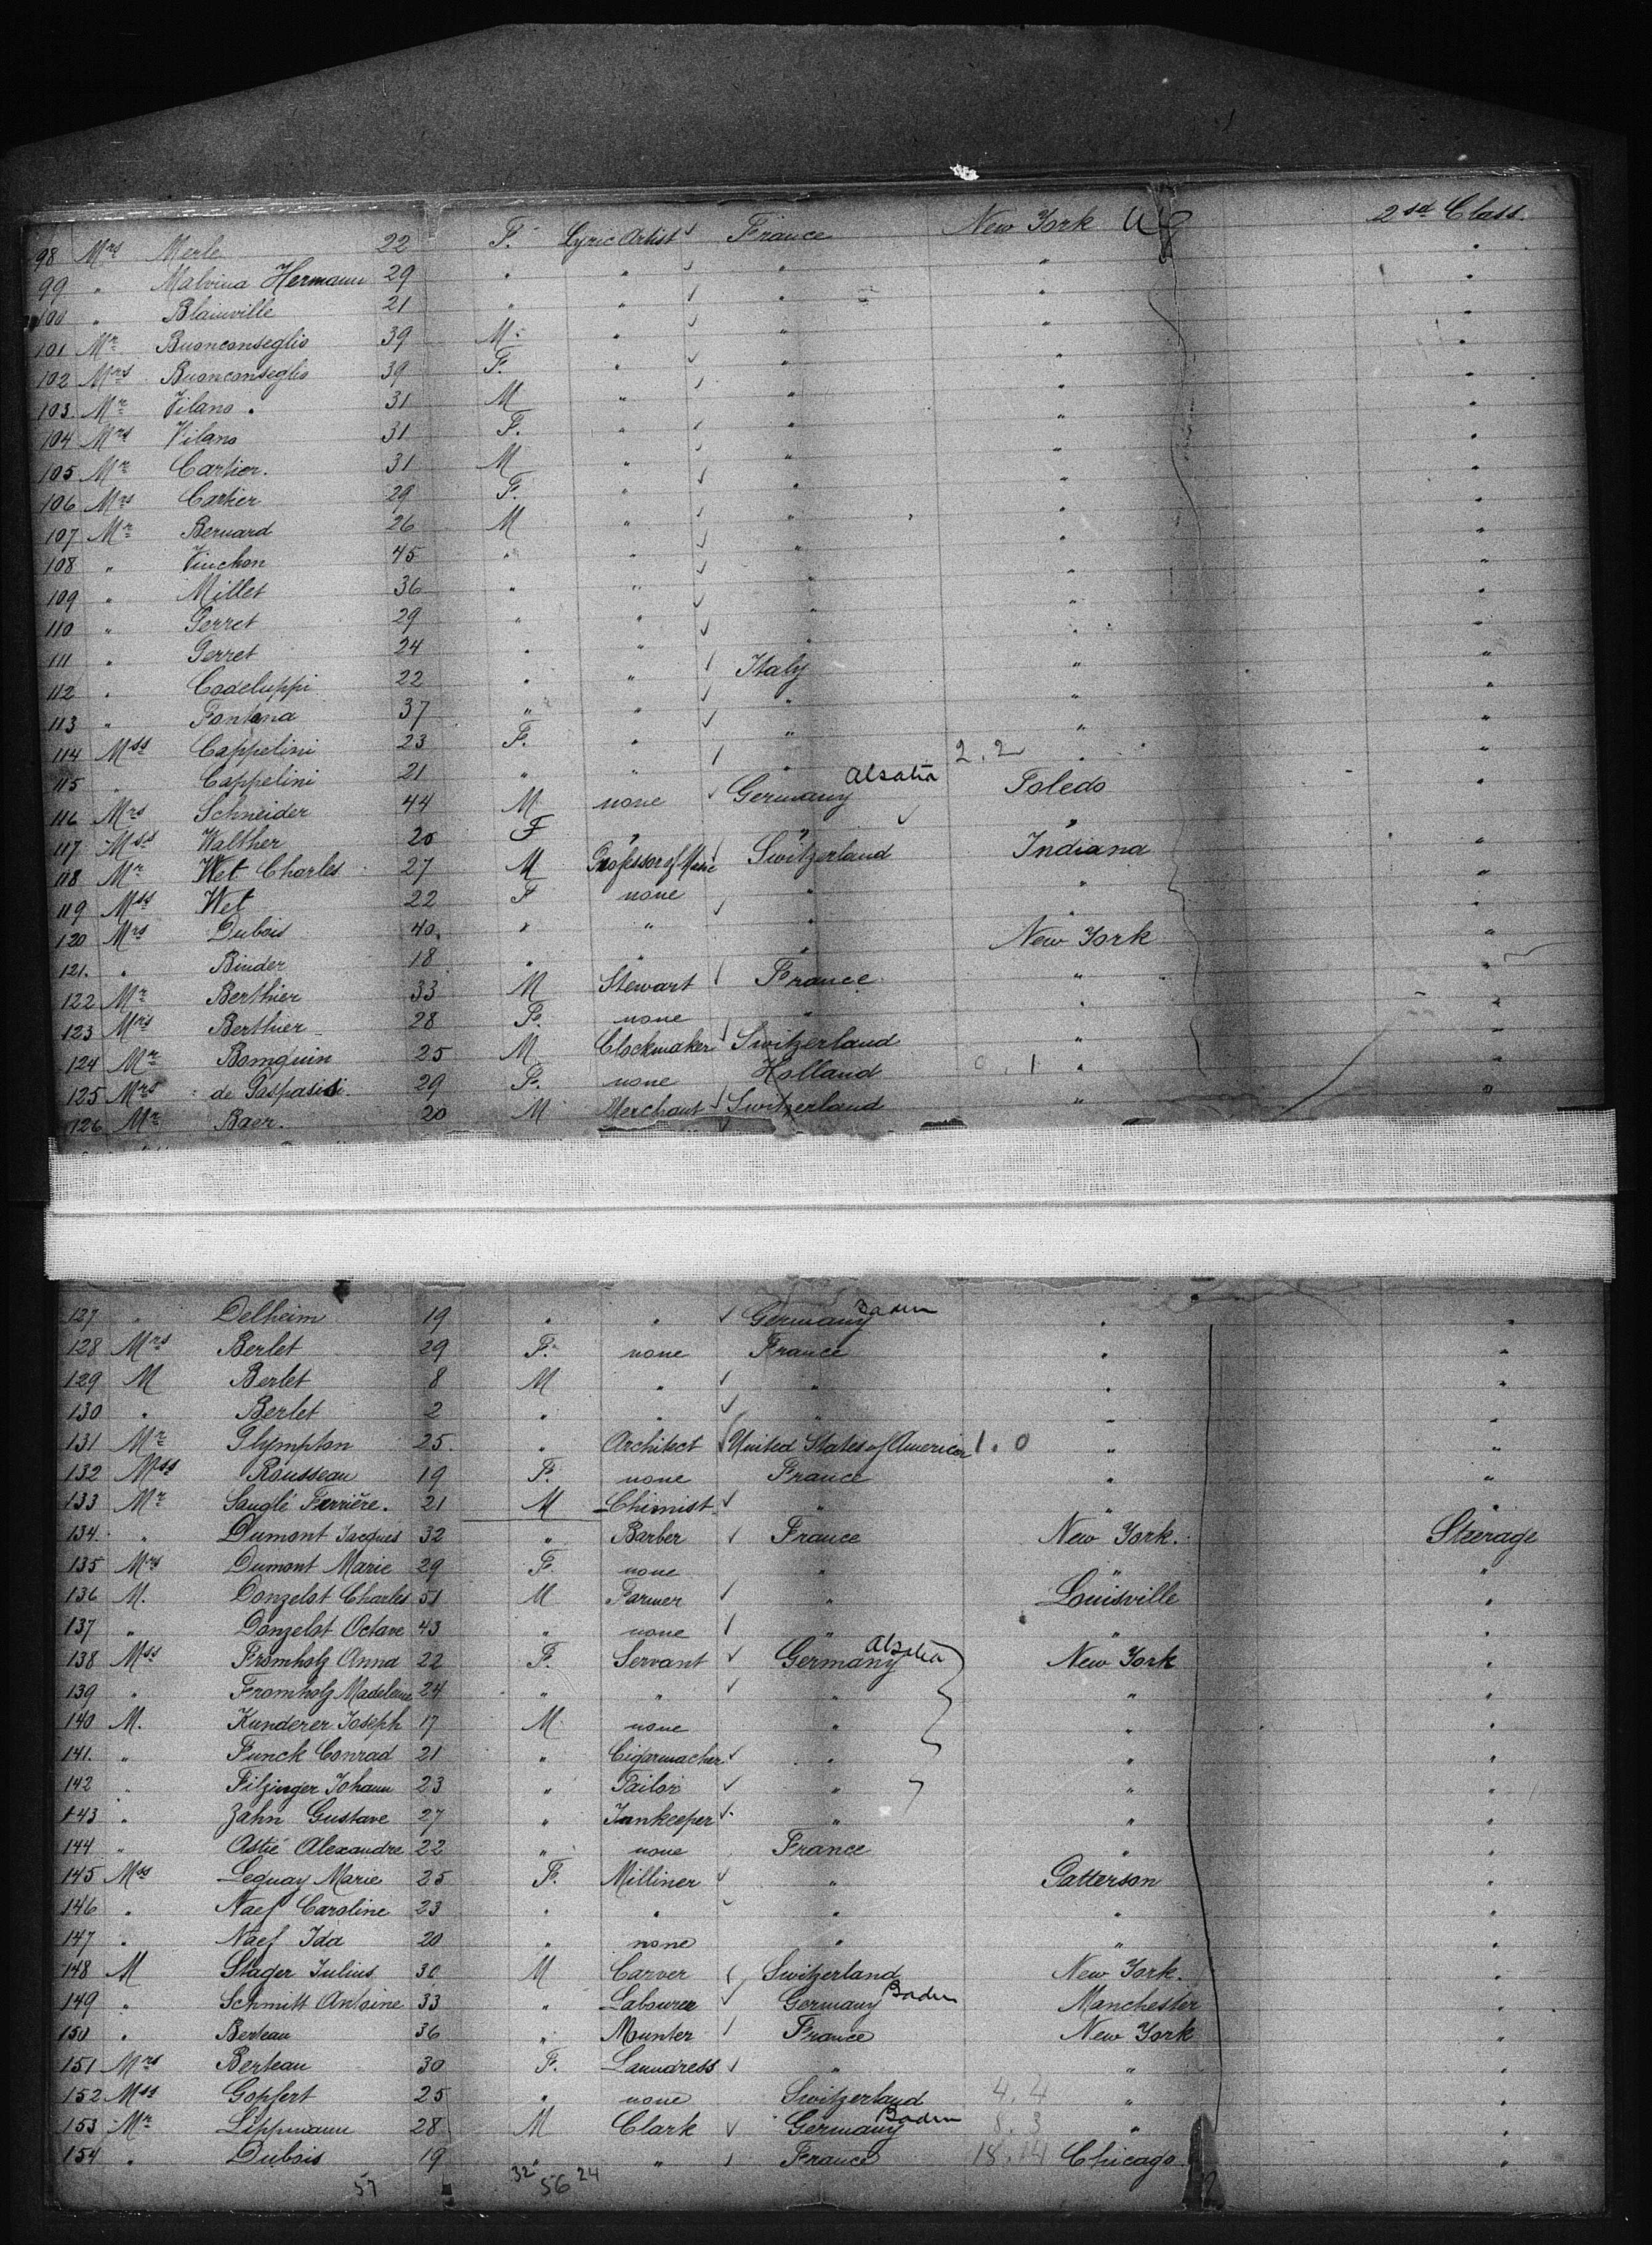 98 Mrs Merle 22 F. Lyric Artist ✓ France New York 2sd Class.
99 " Malvina Hermann 29 " " ✓ " " "
100 " Blainville 21 " " ✓ " " "
101 Mr Buonconseglio 39 M " ✓ " " "
102 Mrs Buonconseglio 39 F. " ✓ " " "
103 Mr Vilano. 31 M " ✓ " " "
104 Mrs Vilano 31 F. " ✓ " " "
105 Mr Cartier. 31 M " ✓ " " "
106 Mrs Cartier 29 F. " ✓ " " "
107 Mr Bernard 26 M " ✓ " " "
108 " Vinchon 45 " " ✓ " " "
109 " Millet 36 " " ✓ " " "
110 " Perret 29 " " ✓ " " "
111 " Perret 24 " " ✓ " " "
112 " Codeluppi 22 " " ✓ Italy " "
113 " Fontana 37 " " ✓ " " "
114 Mss Cappelini 23 F. " ✓ " " "
115 " Cappelini 21 " " ✓ " 2.2 " "
116 Mrs Schneider 44 M none ✓ Germany Alsatia Toledo "
117 Mss Walther 20 F " " " "
118 Mr Wet Charles 27 M Professor of Music ✓ Switzerland Indiana "
119 Mss Wet 22 F none " " "
120 Mrs Dubois 40. " " ✓ " " "
121. " Binder 18 " " " New York "
122 Mr Berthier 33 M Stewart ✓ France " "
123 Mrs Berthier 28 F. none " " "
124 Mr Bomquin 25 M Clockmaker ✓ Switzerland " "
125 Mrs de Gaspasisi 29 F. none Holland 0.1 " "
126 Mr Baer. 20 M Merchant ✓ Switzerland " "
127 " Delheim 19 " " ✓ Germany Baden " "
128 Mrs Berlet 29 F. none France " "
129 M Berlet 8 M " ✓ " " "
130 " Berlet 2 " " ✓ " " "
131 Mr Plympton 25. " Architect ✓ United States of America 1.0 " "
132 Mss Rousseau 19 F. none France " "
133 Mr Sauglé Ferrière. 21 M Chimist ✓ " " "
134. " Dumont Jacques 32 " Barber ✓ France New York. Steerage
135 Mrs Dumont Marie 29 F. none " " "
136 M. Donzelot Charles 51 M Farmer ✓ " Louisville "
137 " Donzelot Octave 43 " none ✓ " " "
138 Mss Fromholz Anna 22 F. Servant ✓ Germany Alsatia New York "
139 " Fromholz Madeleine 24 " " ✓ " " "
140 M. Kunderer Joseph 17 M none " " "
141. " Funck Conrad 21 " Cigarmacher ✓ " " "
142 " Filzinger Johann 23 " Tailor ✓ " " "
143 " Zahn Gustave 27 " Innkeeper ✓ " " "
144 " Astié Alexandre 22 " none France " "
145 Mss Lequay Marie 25 F. Milliner ✓ " Patterson "
146 " Naef Caroline 23 " " ✓ " " "
147 " Naef Ida 20 " none " " "
148 M Stager Julius 30 M Carver ✓ Switzerland New York. "
149 " Schmitt Antoine 33 " Labourer ✓ Germany Baden Manchester "
150 " Berteau 36 " Munter ✓ France New York "
151 Mrs Berteau 30 F. Laundress ✓ " " "
152 Mss Gopfert 25 " none Switzerland 4.4 " "
153 Mr Lippmann 28 M Clark ✓ Germany Baden 8.3 " "
154 " Dubois 19 " " ✓ France 18.14 Chicago "
57 32 56 24